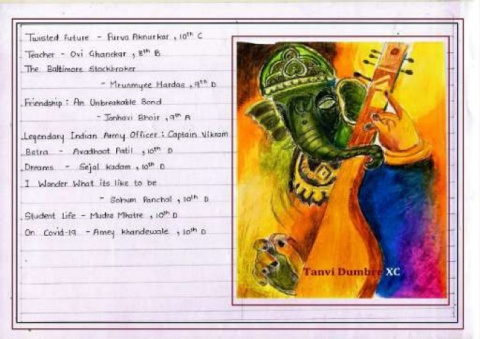 Twisted Future - Purva Aknurkar, 10th C
Teacher - Ovi Ghanekar, 8th B
The Baltimore Stockbroker
- Mrunmyee Hardas, 9th D
Friendship : An Unbreakable Bond
- Janhavi Bhoir, 9th A
Legendary Indian Army Officer : Captain Vikram
Batra - Avadhoot Patil, 10th D
Dreams - Sejal Kadam, 10th D
I Wonder What its like to be
- Soham Panchal, 10th D
Student Life - Mudra Mhatre, 10th D
On Covid-19 - Amey Khandewale, 10th D
Tanvi Dumbre XC